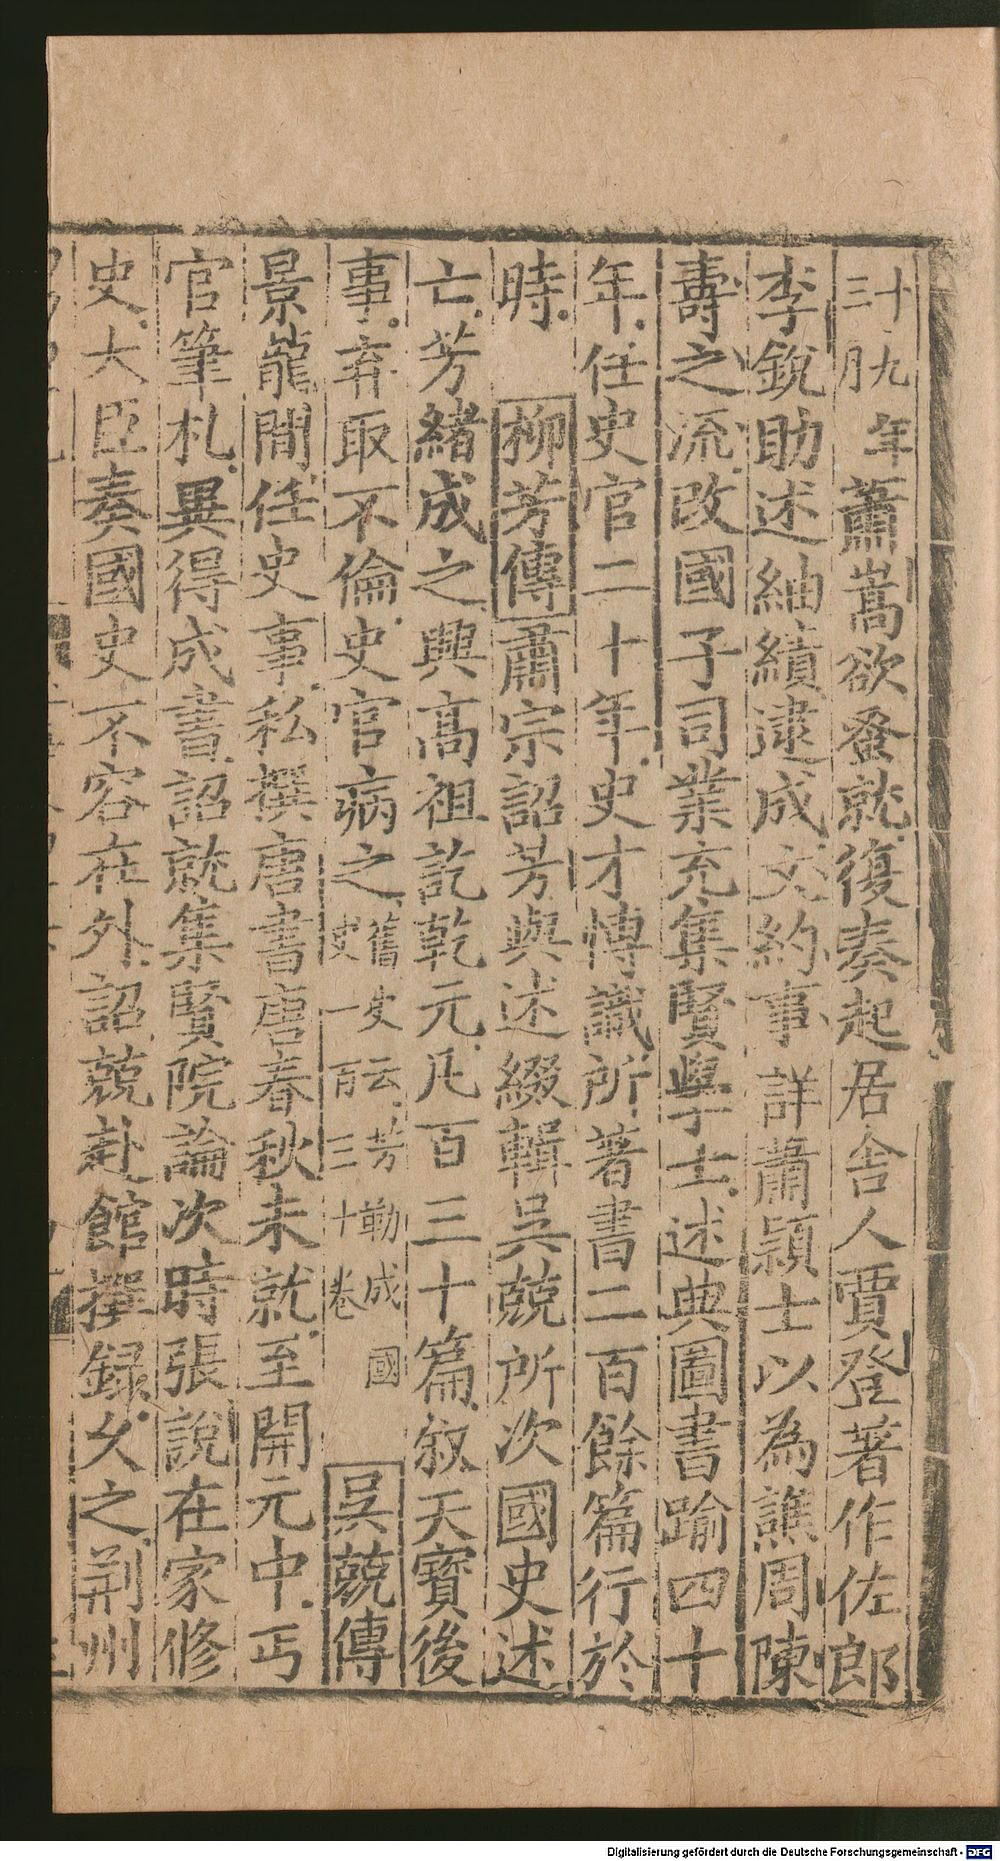 十九年三月蕭嵩欲蚤就復奏起居舍人賈登著作佐郎
李銳助述紬績逮成文約事詳蕭頴士以為譙周陳
壽之流改國子司業充集賢學士述典圖書踰四十
年任史官二十年史才博識所著書二百餘篇行於
時 柳芳傳肅宗詔芳與述綴輯吳兢所次國史述
亡芳緒成之興髙祖訖乾元凡百三十篇叙天寶後
事弃取不倫史官病之舊史云芳勒成國史一百三十卷 吳兢傳
景龍間任史事私撰唐書唐春秋未就至開元中丐
官筆札兾得成書詔就集賢院論次時張說在家修
史大臣奏國史不容在外詔兢赴館撰録乆之荆州
Digitalisierung gefördert durch die Deutsche Forschungsgemeinschaft - DFG